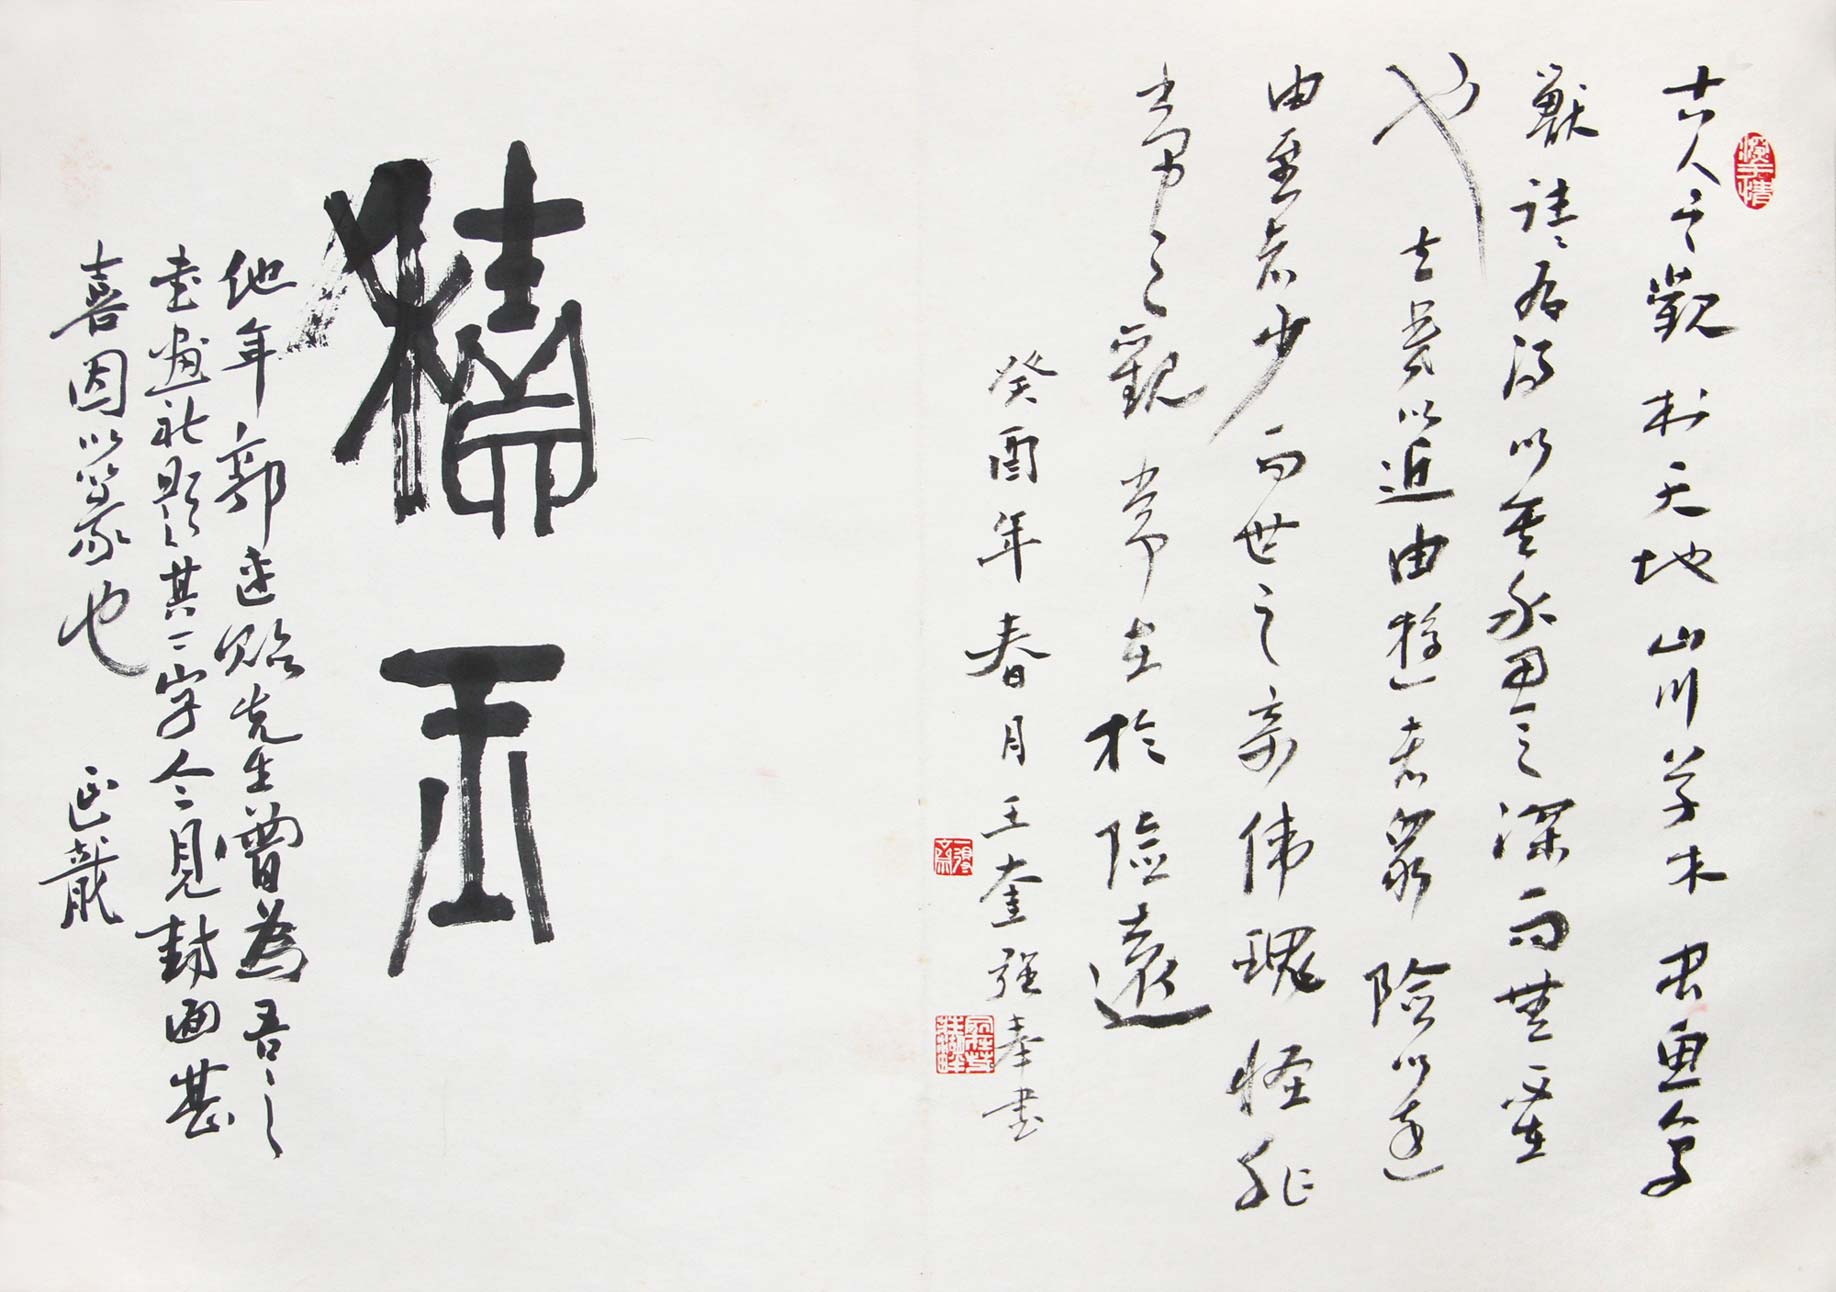 古人之觀於天地山川草木虫魚鳥
獸往往有得以其求思之深而無不在
也夫夷以近由遊者眾險以遠
由至者少而世之奇伟瑰怪非
常之觀常在於險遠
癸酉年春月王奎強奉書
積玉
他年郭连貽先生曾為吾之
書画社題其二字今見封面甚
喜因以篆也 正龍